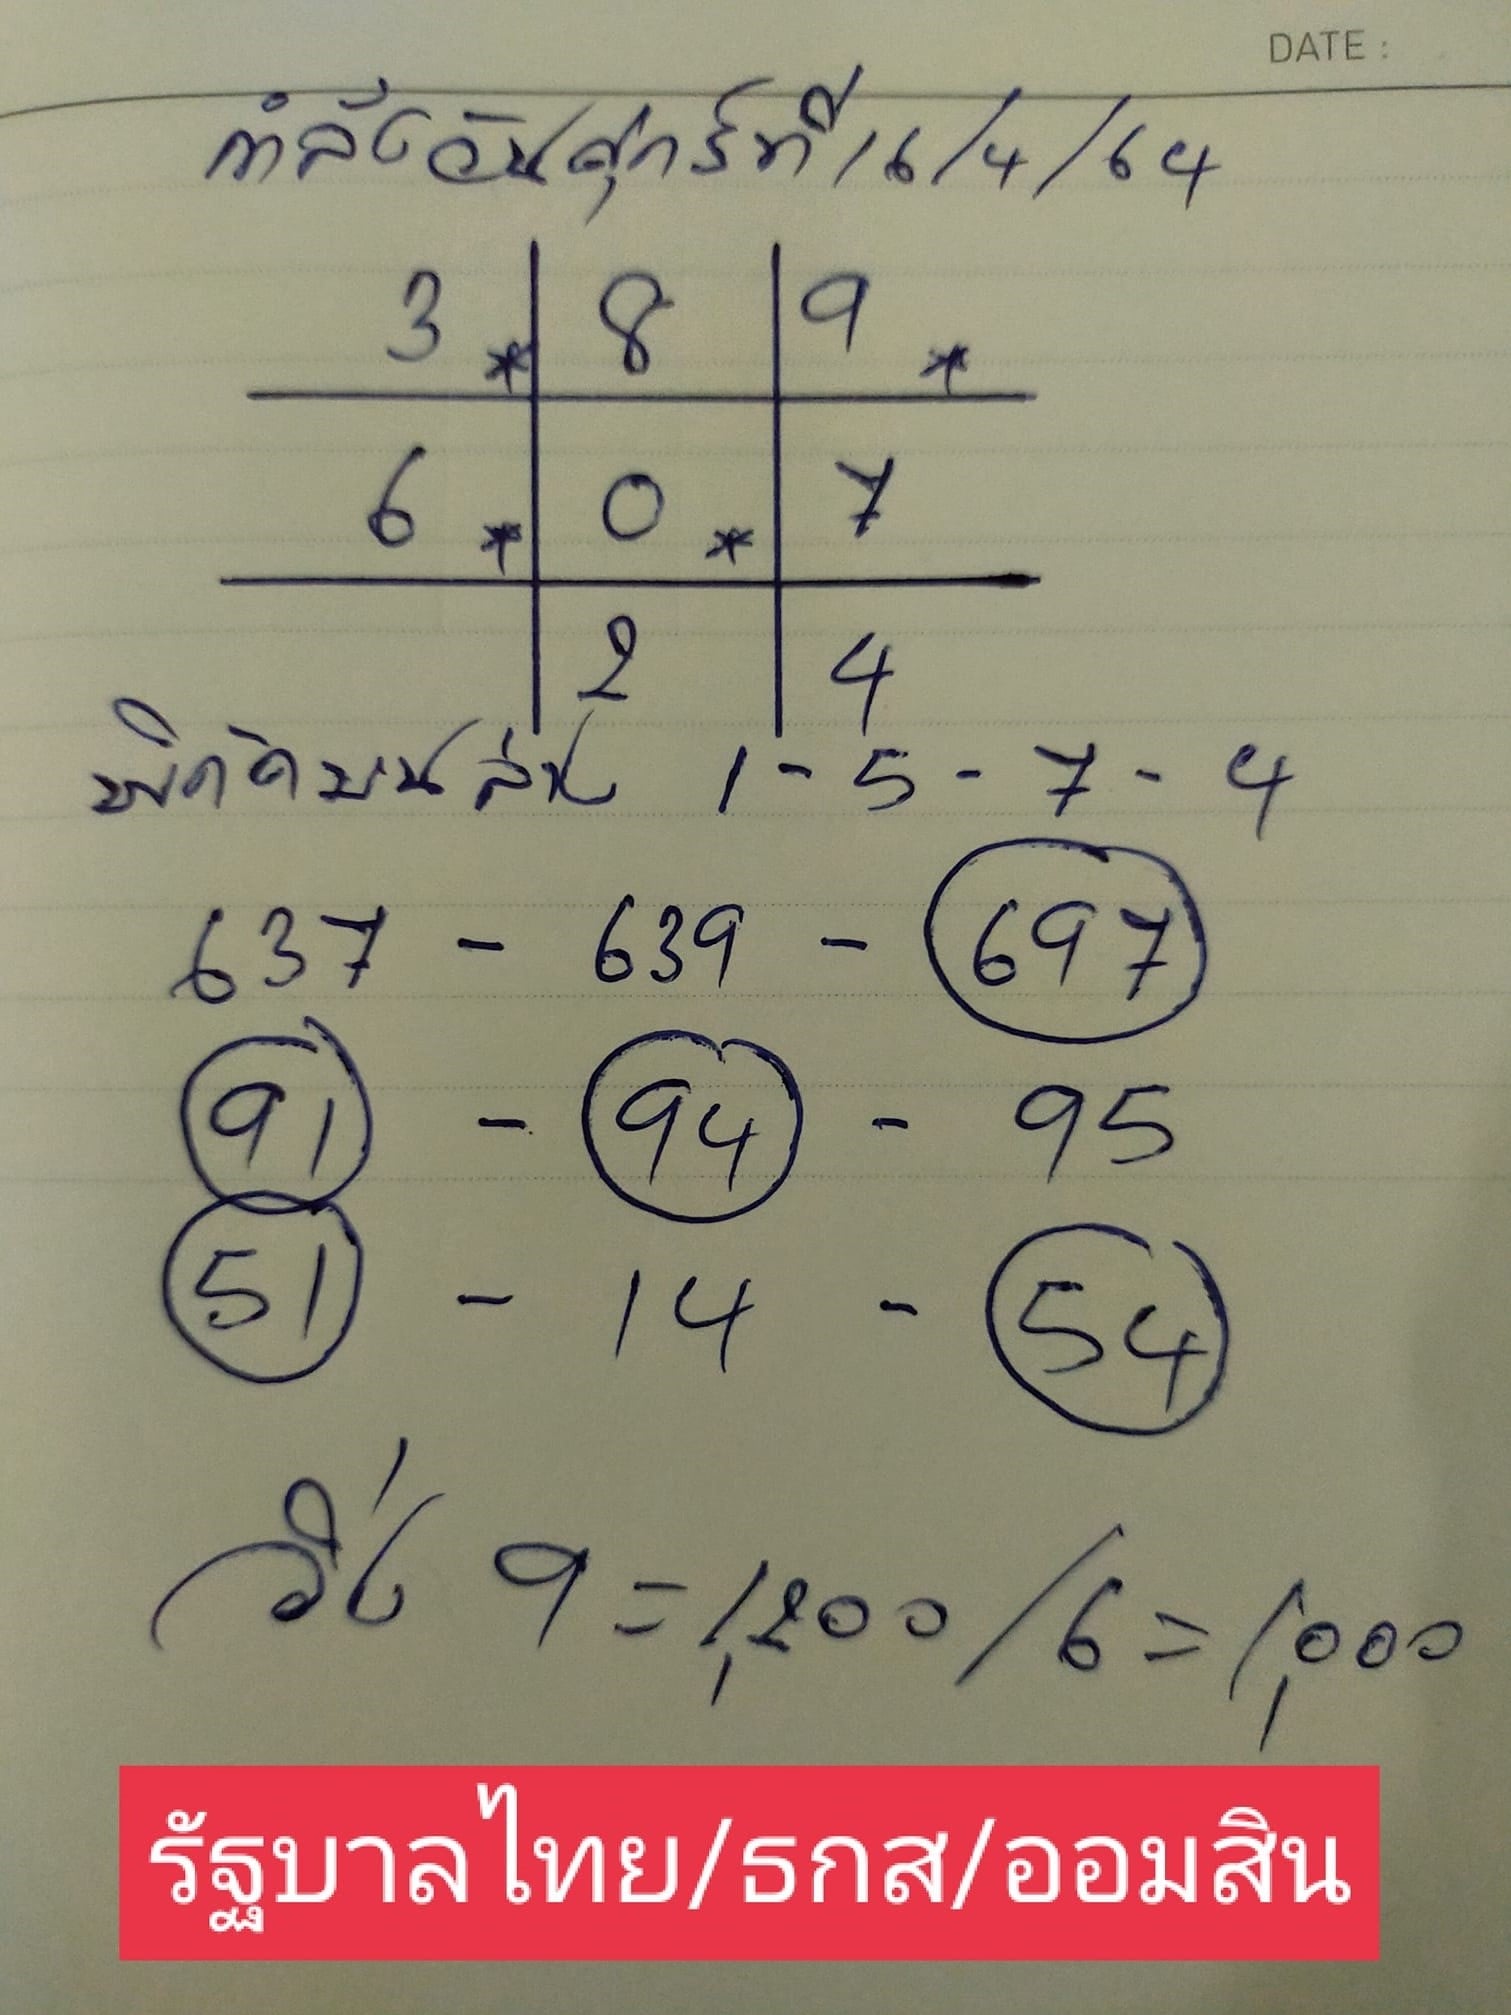 DATE :
กำลังวันศุกร์ที่ 16/4/64
3 * 8 9 *
6 * 0 * 7
2 4
พิกัดบนล่าง 1 - 5 - 7 - 4
637 - 639 - 697
91 - 94 - 95
51 - 14 - 54
วิ่ง 9 = 1,200 / 6 = 1,000
รัฐบาลไทย/ธกส/ออมสิน